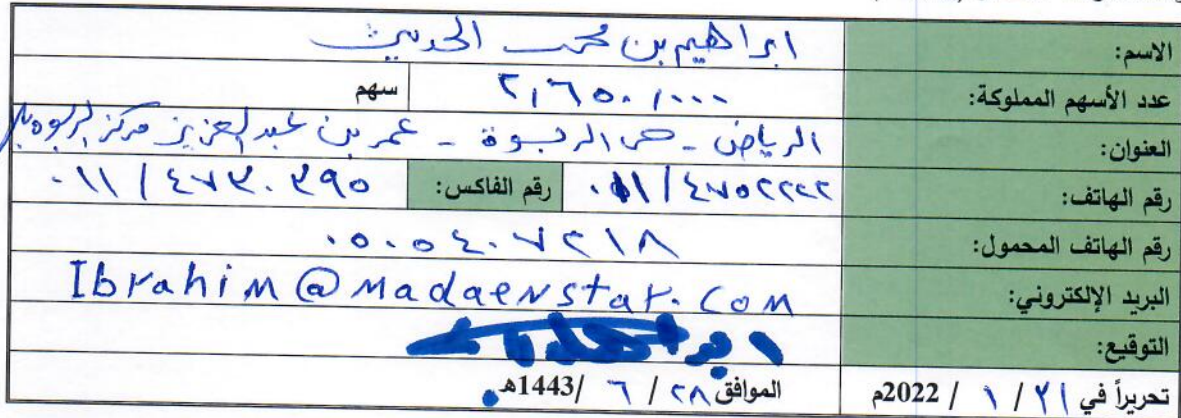 الاسم: ابراهيم بن محمد الحديثي
عدد الأسهم المملوكة: ٢,٦٥٠,٠٠٠ سهم
العنوان: الرياض - حي الربوة - عمر بن عبدالعزيز مركز الربوة بلازا
رقم الهاتف: ٠١١/٤٧٥٢٢٢٢ رقم الفاكس: ٠١١/٤٧٣٠٣٩٥
رقم الهاتف المحمول: ٠٥٠٥٤٠٧٢١٨
البريد الإلكتروني: Ibrahim@Madaenstar.com
التوقيع:
تحريراً في ٣١ / ١ / 2022م الموافق ٢٨ / ٦ /1443هـ